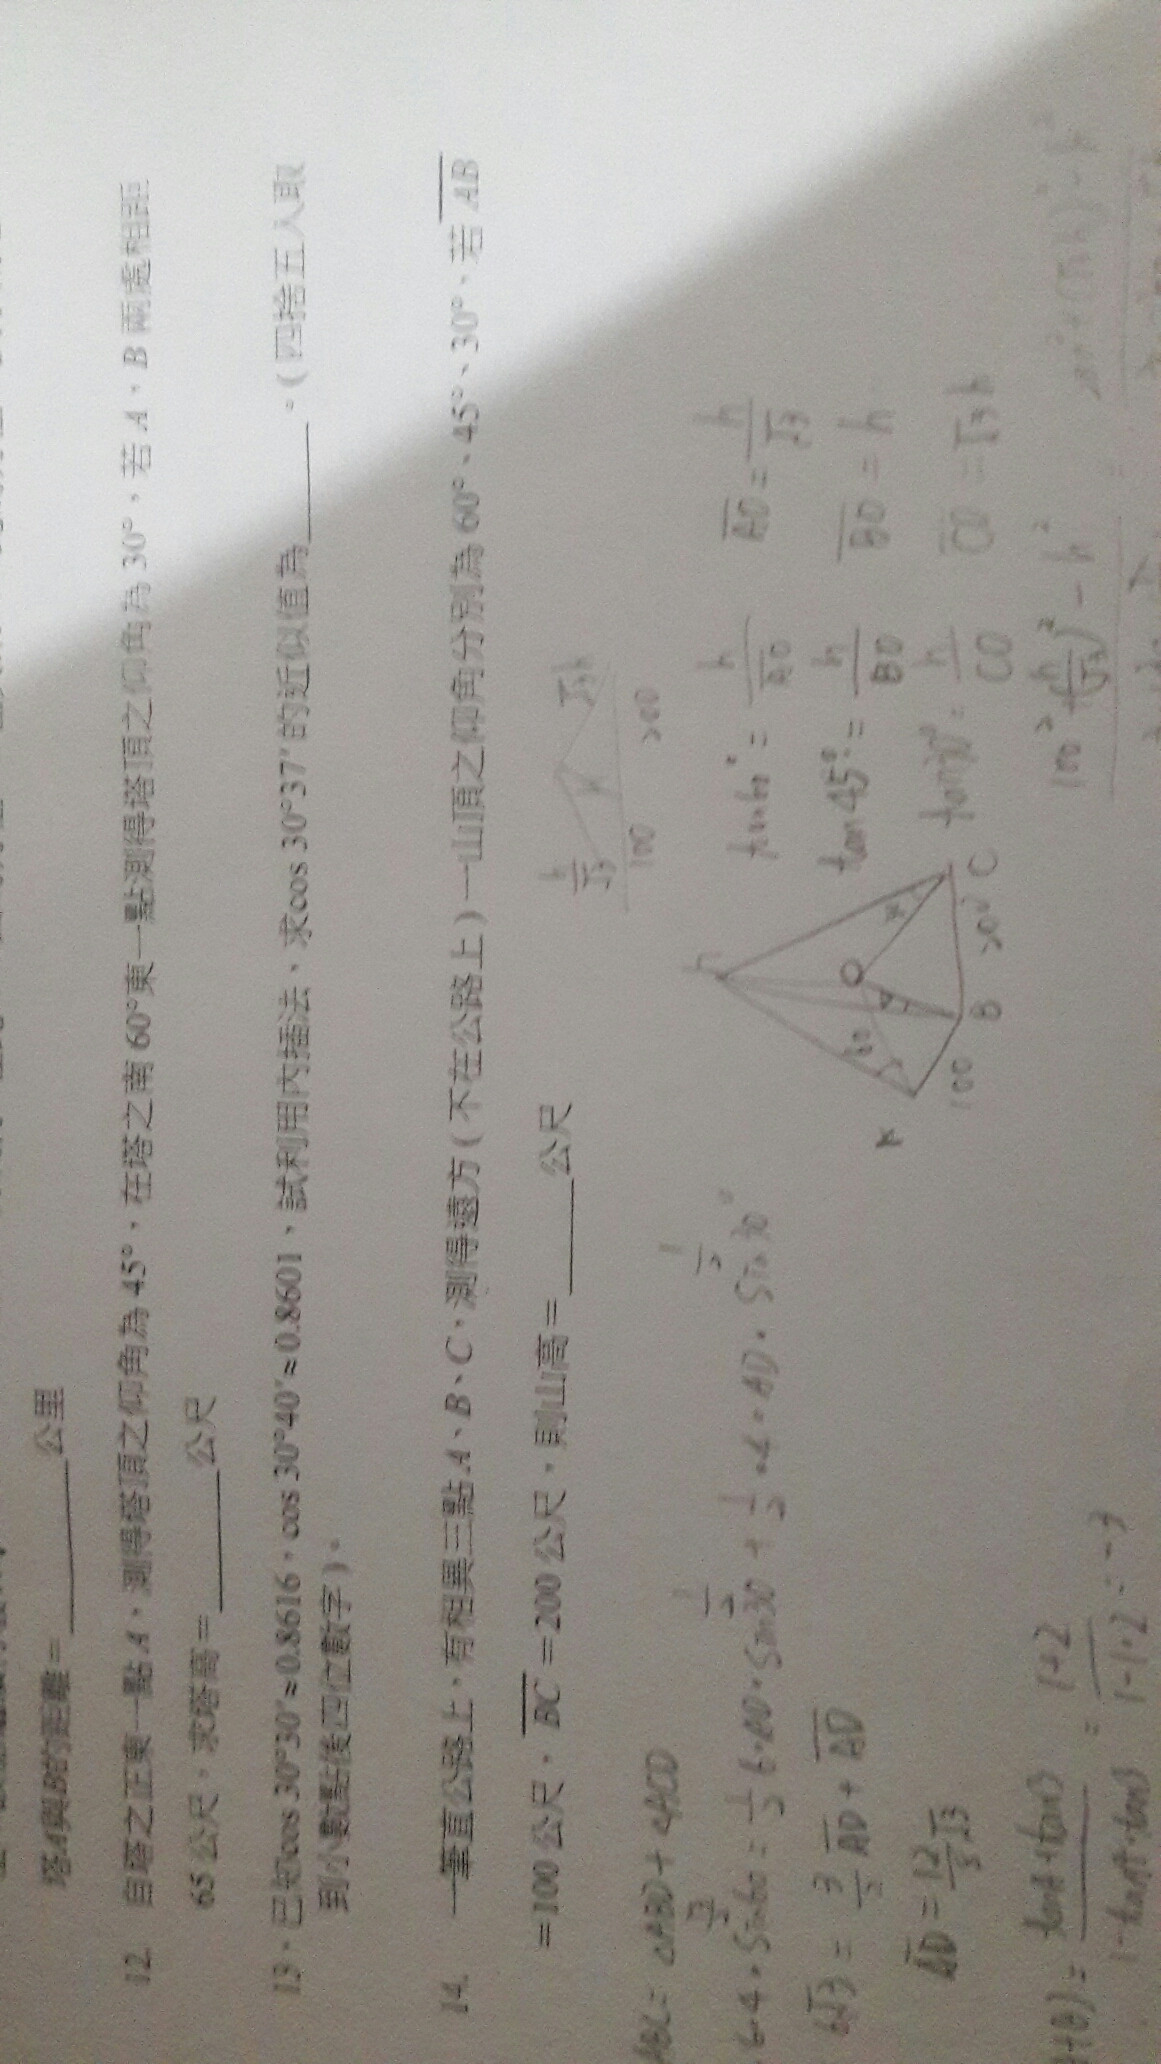 塔A與B的距離=______公里
12. 自塔之正東一點A,測得塔頂之仰角為45°,在塔之南60°東一點測得塔頂之仰角為30°,若A、B兩處相距
65公尺,求塔高=______公尺
13、已知cos 30°30'≈0.8616,cos 30°40'≈0.8601,試利用內插法,求cos 30°37''的近似值為______。(四捨五入取
到小數點後四位數字)。
14. 一筆直公路上,有相異三點A、B、C,測得遠方(不在公路上)一山頂之仰角分別為60°、45°、30°,若 \overline{AB}
=100公尺,\overline{BC}=200公尺,則山高=______公尺
h/√3
h
√3h
100
200
ABC = △ABD + △ACD
6·4·sin60 = 1/2 6·AD·sin30 + 1/2·4·AD·sin30°
√3/2
1/2
1/2
6√3 = 3/2 AD + AD
AD = 12/5 √3
tanA+tanB / 1-tanA·tanB = 1+2 / 1-1·2 = -3
h
60
O
A
B
C
100
200
tan60° = h/AO
AO = h/√3
tan45° = h/BO
BO = h
tan30° = h/CO
CO = √3h
100² + (h/√3)² - h²